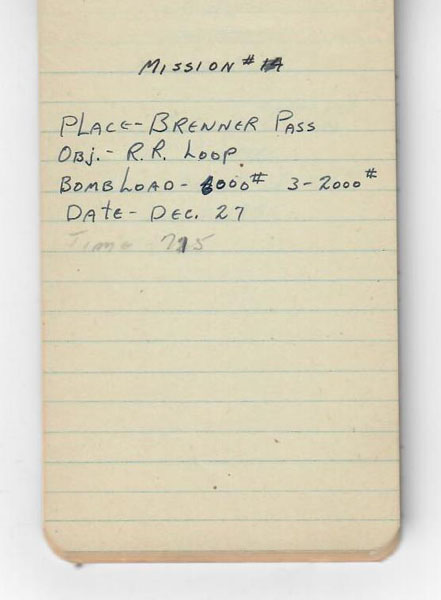 MISSION # 14
PLACE - BRENNER PASS
OBJ. - R.R. LOOP.
BOMB LOAD - 6000# 3-2000#
DATE - DEC. 27
Time 715